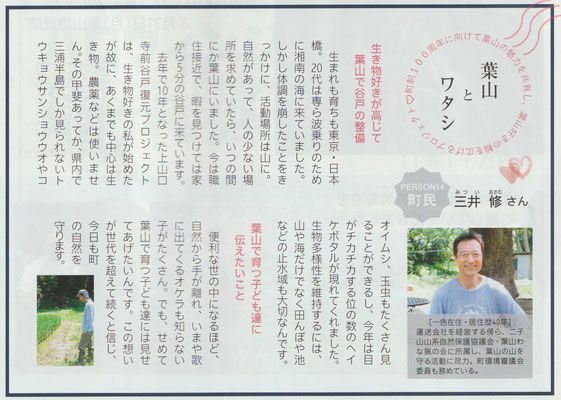 町制100周年に向けて葉山の魅力を共有し、葉山好きの輪を広げるプロジェクト
葉山
と
ワタシ
PERSON14
町民
みつい おさむ
三井 修さん
生き物好きが高じて
葉山で谷戸の整備
生まれも育ちも東京・日本
橋。20代は専ら波乗りのため
に湘南の海に来ていました。
しかし体調を崩したことをき
っかけに、活動場所は山に。
自然があって、人の少ない場
所を求めていたら、いつの間
にか葉山にいました。今は職
住接近で、暇を見つけては家
から5分の谷戸に来ています。
去年で10年となった上山口
寺前谷戸復元プロジェクト
は、生き物好きの私が始めた
が故に、あくまでも中心は生
き物。農薬などは使いませ
ん。その甲斐あってか、県内で
三浦半島でしか見られないト
ウキョウサンショウウオやコ
オイムシ、玉虫もたくさん見
ることができるし、今年は目
がチカチカする位の数のヘイ
ケボタルが現れてくれました。
生物多様性を維持するには、
山や海だけでなく田んぼや池
などの止水域も大切なんです。
葉山で育つ子ども達に
伝えたいこと
便利な世の中になるほど、
自然から手が離れ、いまや歌
に出てくるオケラも知らない
子がたくさん。でも、せめて
葉山で育つ子ども達には見せ
てあげたいんです。この想い
が世代を超えて続くと信じ、
今日も町
の自然を
守ります。
［一色在住・居住歴40年］
運送会社を経営する傍ら、二子
山山系自然保護協議会・葉山わ
な猟の会に所属し、葉山の山を
守る活動に尽力。町環境審議会
委員も務めている。